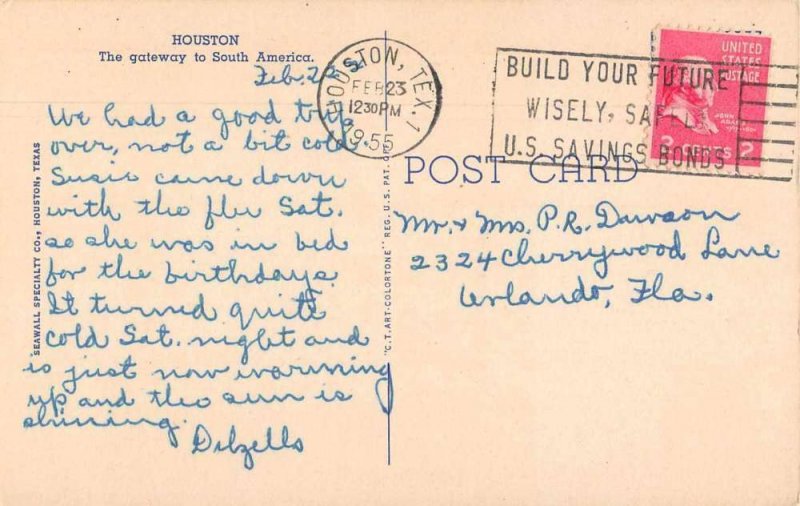 HOUSTON
The gateway to South America.
Feb. 23
We had a good trip
over, not a bit cold.
Susie came down
with the flu Sat.
so she was in bed
for the birthdays.
It turned quite
cold Sat. night and
is just now warming
up and the sun is
shining.
Dilzells
SEAWALL SPECIALTY CO., HOUSTON, TEXAS
"C.T. ART-COLORTONE" REG. U.S. PAT. OFF.
HOUSTON, TEX. 1
FEB 23
12 30 PM
1955
BUILD YOUR FUTURE
WISELY, SAFELY
U.S. SAVINGS BONDS
UNITED
STATES
POSTAGE
JOHN
ADAMS
2 CENTS 2
POST CARD
Mr. & Mrs. P.R. Dawson
2324 Cherrywood Lane
Orlando, Fla.